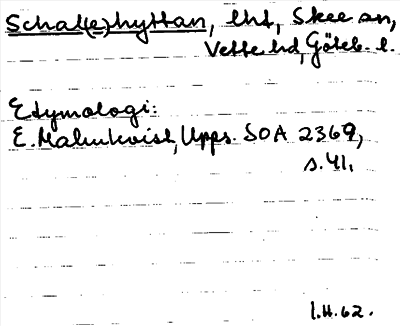 Schal(e)hyttan, lht, Skee sn,
Vette hd, Göteb. l.
Etymologi:
E. Malmkvist, Upps. SOA 2369,
s. 41.
I.H. 62.